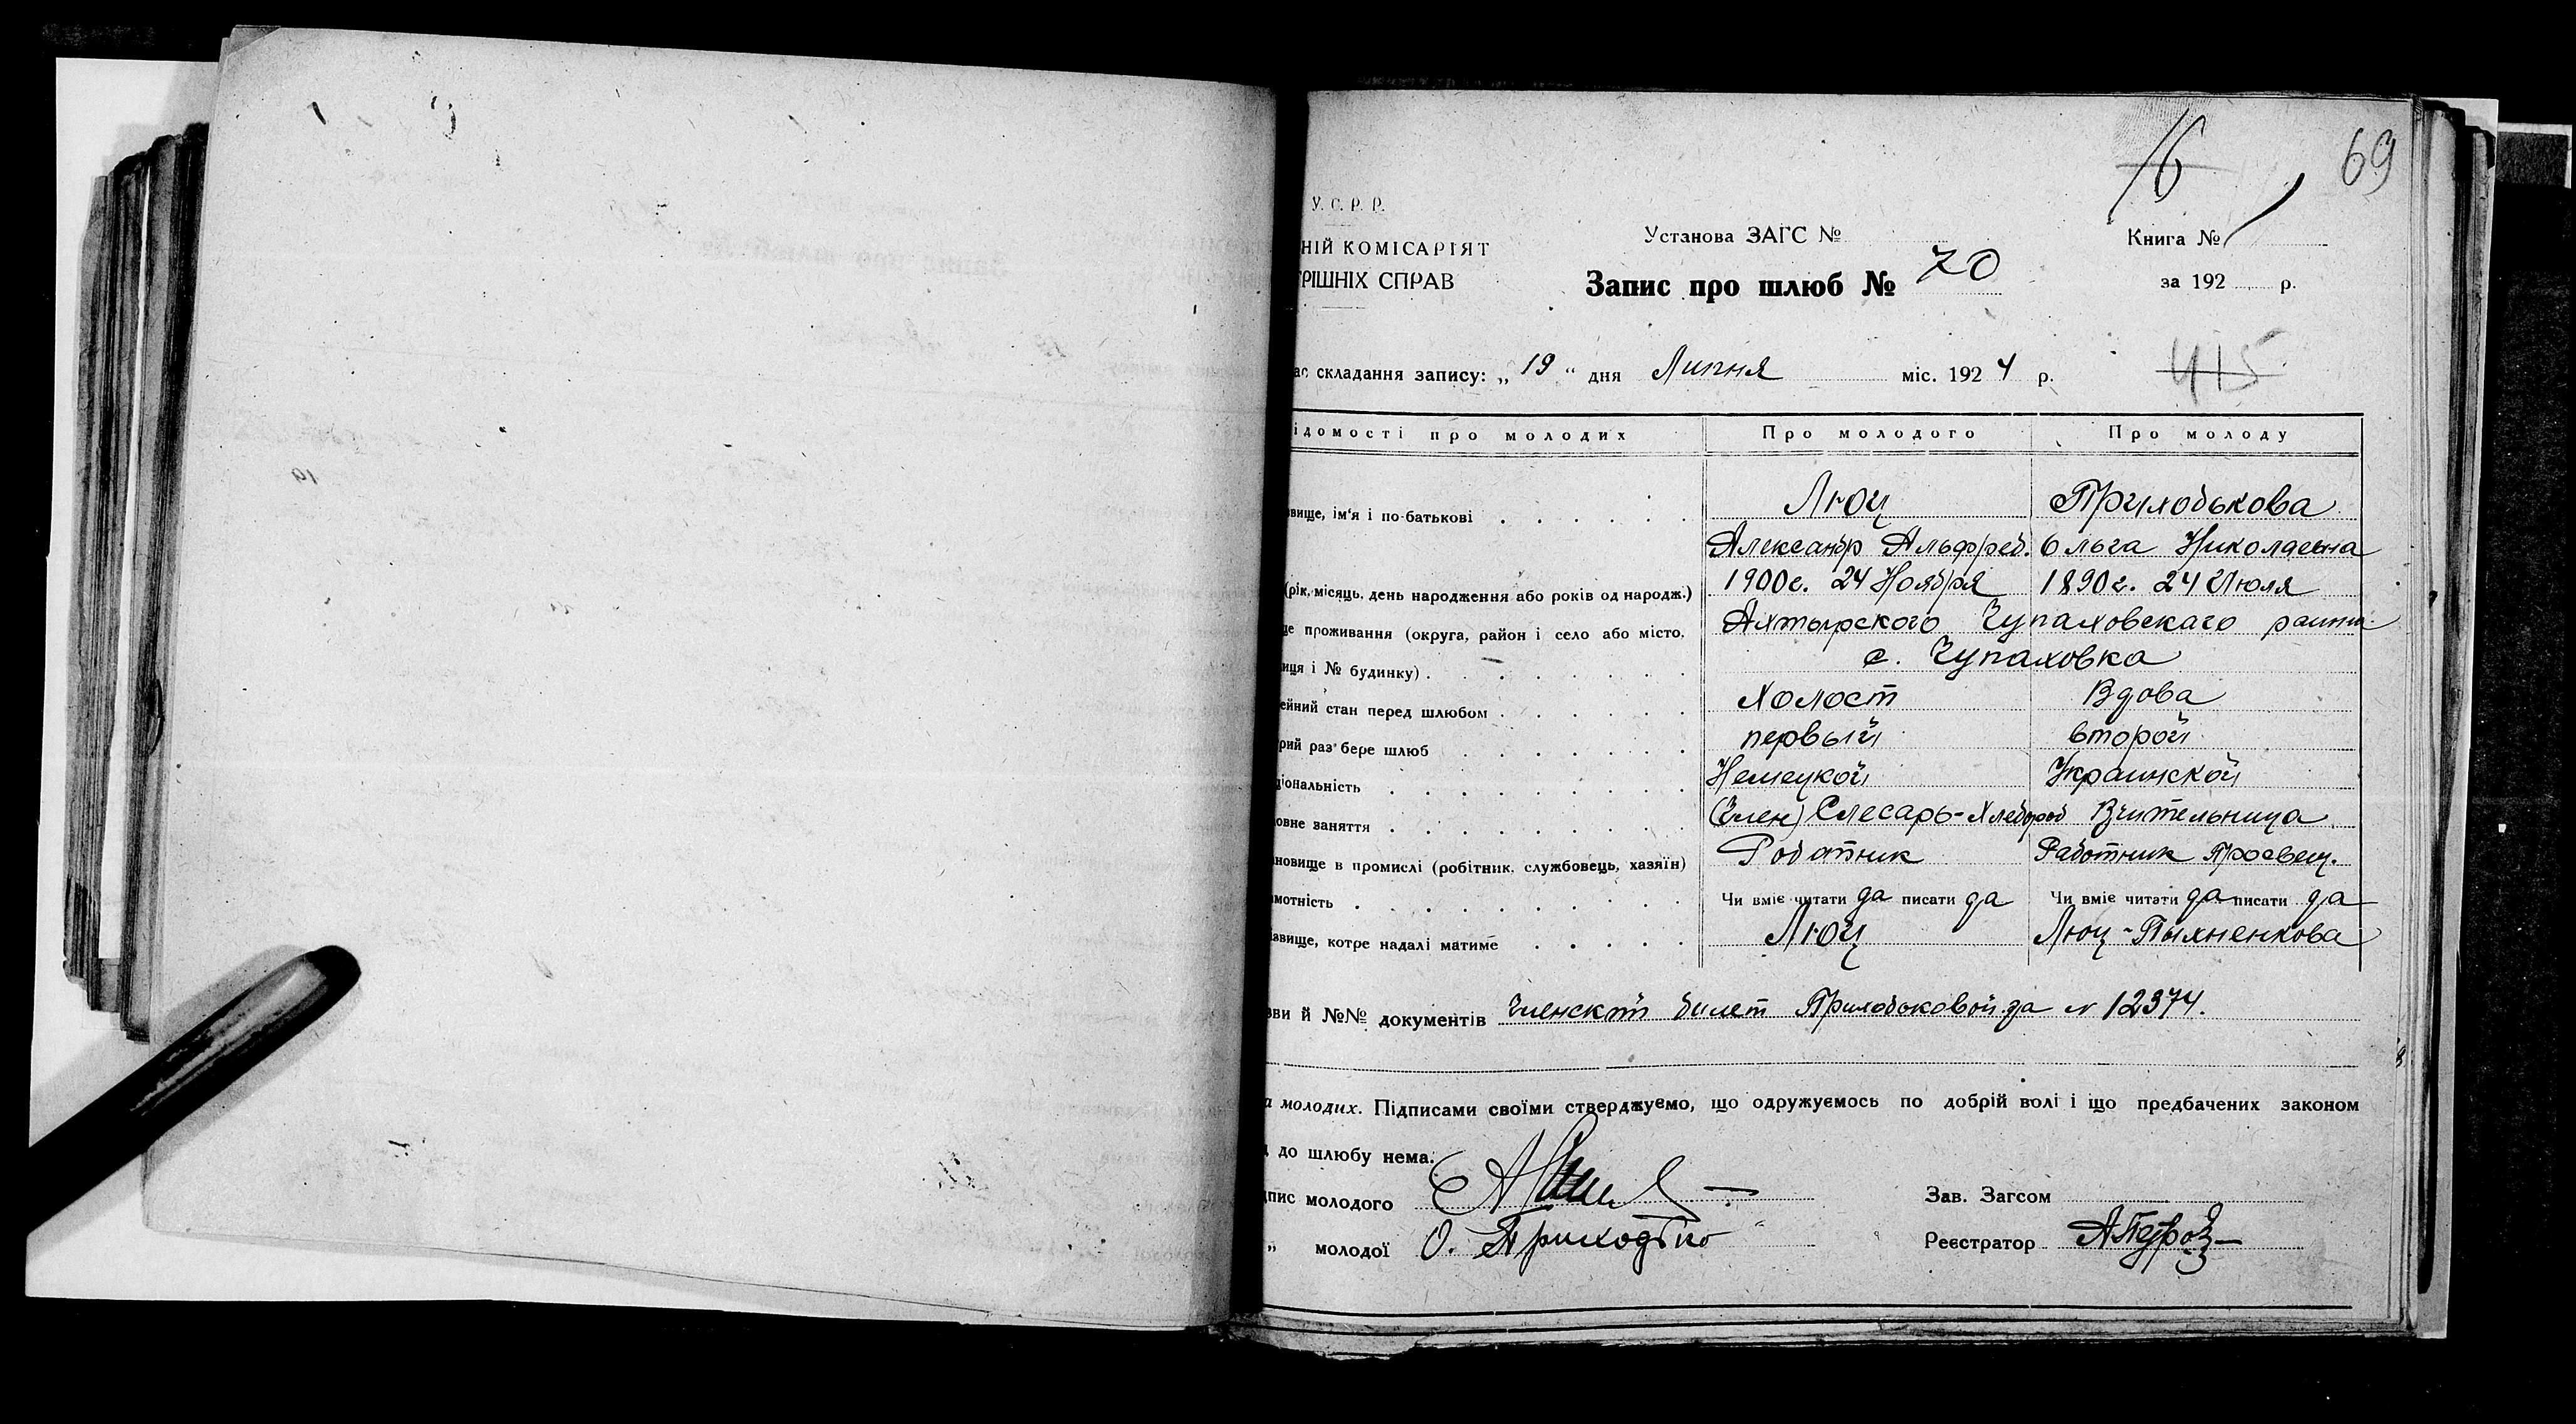 16
69
У. С. Р. Р.
НІЙ КОМІСАРІЯТ
РІШНІХ СПРАВ
Установа ЗАГС №
Запис про шлюб № 70
Книга №
за 192 р.
ас складання запису: „ 19 “ дня Липня міс. 192 4 р.
415
ідомості про молодих Про молодого Про молоду
звище, ім'я і по-батькові Люц Приходькова
Александр Альфред. Ольга Николаевна
(рік, місяць, день народження або років од народж.) 1900 г. 24 Ноября 1890 г. 24 Июля
це проживання (округа, район і село або місто, Ахтырского Чупаховскаго
иця і № будинку) с. Чупаховка
ейний стан перед шлюбом Холост Вдова
рий раз бере шлюб первый второй
ціональність Немецкой Украинской
овне заняття (Член) Слесарь-Хлебороб Вчительница
новище в промислі (робітник, службовець, хазяїн) Робатник Работник Просвещ.
мотність Чи вміє читати да писати да Чи вміє читати да писати да
ізвище, котре надалі матиме Люц Люц-Пыхненкова
зви й №№ документів Членский билет Приходьковой за № 12374.
а молодих. Підписами своїми стверджуємо, що одружуємось по добрій волі і що предбачених законом
д до шлюбу нема.
дпис молодого
Зав. Загсом
„ молодої О. Приходько
Реєстратор